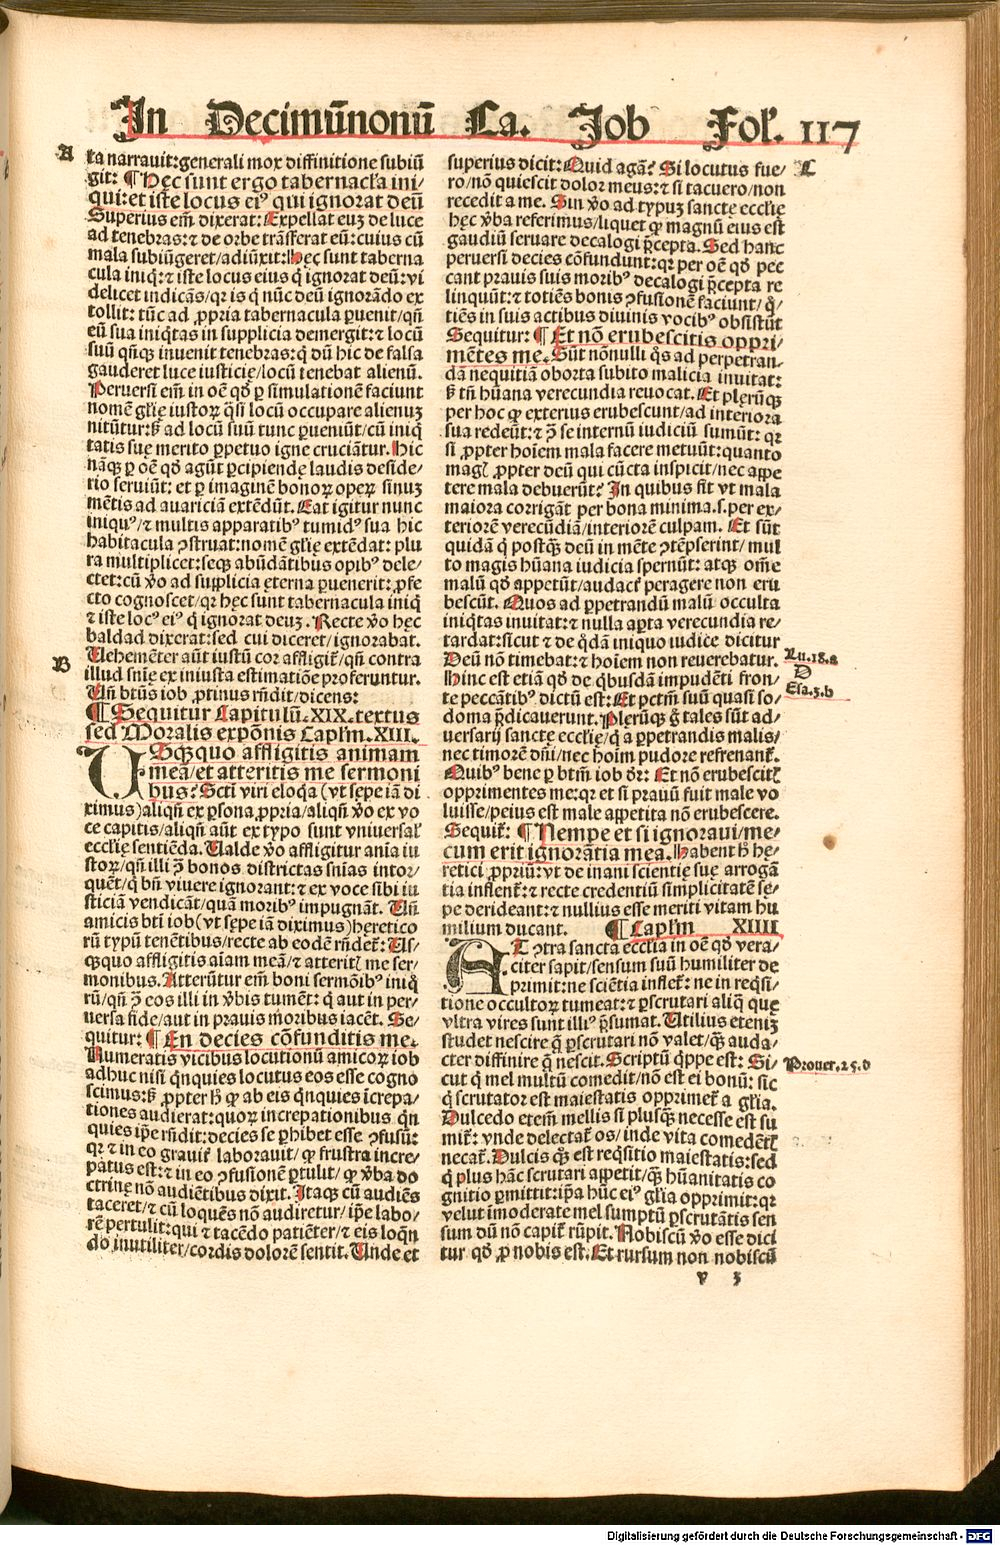 In Decimūnonū Ca. Job Fol. 117
A
ta narrauit: generali mox diffinitione subiū
git: ¶ Hęc sunt ergo tabernacl'a ini/
qui: et iste locus eiꝰ qui ignorat deū
Superius em̄ dixerat: Expellat euʒ de luce
ad tenebras: ⁊ de orbe trāsferat eū: cuius cū
mala subiūgeret/adiūxit: Hęc sunt taberna
cula iniq̇: ⁊ iste locus eius q̇ ignorat deū: vi
delicet indicās/qꝛ is q̇ nūc deū ignorādo ex
tollit: tūc ad ꝓpria tabernacula ꝑuenit/qn̄
eū sua iniq̇tas in supplicia demergit: ⁊ locū
suū qn̄qꝫ inuenit tenebras: q̇ dū hic de falsa
gauderet luce iusticię/locū tenebat alienū.
Peruersi em̄ in oē qd̄ ꝑ simulationē faciunt
nomē gl'ię iustoꝝ q̄si locū occupare alienuʒ
nitūtur: sꝫ ad locū suū tunc ꝑueniūt/cū iniq̇
tatis suę merito ꝑpetuo igne cruciātur. Hic
nāqꝫ ꝑ oē qd̄ agūt ꝑcipiendę laudis deside/
rio seruiūt: et ꝑ imaginē bonoꝝ opeꝝ sinuʒ
mētis ad auariciā extēdūt. Eat igitur nunc
iniquꝰ/⁊ multis apparatibꝰ tumidꝰ sua hic
habitacula ꝯstruat: nomē gl'ię extēdat: plu
ra multiplicet: seqꝫ abūdātibus opibꝰ dele/
ctet: cū v̄o ad supplicia ęterna ꝑuenerit: ꝓfe
cto cognoscet/qꝛ hęc sunt tabernacula iniq̇
⁊ iste locꝰ eiꝰ q̇ ignorat deuʒ. Recte v̄o hęc
baldad dixerat: sed cui diceret/ignorabat.
B
Uehemēter aūt iustū cor affligit᷑/qn̄ contra
illud sn̄ię ex iniusta estimatiōe proferuntur.
Un̄ bt̄us iob ꝓtinus rn̄dit/dicens:
¶ Sequitur Capitulū. XIX. textus
sed Moralis expōnis Capl'm. XIII.
USqꝫquo affligitis animam
meā/et atteritis me sermoni
bus? Scti viri eloq̄a (vt sępe iā di
ximus) aliqn̄ ex ꝑsona ꝓpria/aliqn̄ v̄o ex vo
ce capitis/aliqn̄ aūt ex typo sunt vniuersal'
eccl'ię sentiēda. Ualde v̄o affligitur aīa iu
stoꝝ/qn̄ illi ꝯ bonos districtas sn̄ias intor/
quēt/q̇ bn̄ viuere ignorant: ⁊ ex voce sibi iu
sticiā vendicāt/quā moribꝰ impugnāt. Un̄
amicis bt̄i iob (vt sępe iā diximus) hęretico
rū typū tenētibus/recte ab eodē rn̄det᷑: Us/
qꝫquo affligitis aīam meā/⁊ atterit' me ser/
monibus. Atterūtur em̄ boni sermōibꝰ iniq̇
rū/qn̄ ꝯ eos illi in v̄bis tumēt: q̇ aut in per/
uersa fide/aut in prauis moribus iacēt. Se/
quitur: ¶ En decies cōfunditis me.
Numeratis vicibus locutionū amicoꝝ iob
adhuc nisi q̇nquies locutus eos esse cogno
scimus: sꝫ ꝓpter hͦ qꝫ ab eis q̇nquies īcrepa/
tiones audierat: quoꝝ increpationibus q̇n
quies ip̄e rn̄dit: decies se ꝑhibet esse ꝯfusū:
qꝛ ⁊ in eo grauit᷑ laborauit/qꝫ frustra incre/
patus est: ⁊ in eo ꝯfusionē ꝑtulit/qꝫ v̄ba do
ctrinę nō audiētibus dixit. Itaqꝫ cū audiēs
taceret/⁊ cū loquēs nō audiretur/ip̄e labo/
rē pertulit: qui ⁊ tacēdo patiēter/⁊ eis loqn̄
do inutiliter/cordis dolorē sentit. Unde et
superius dicit: Quid agā? Si locutus fue/
ro/nō quiescit dolor meus: ⁊ si tacuero/non
recedit a me. Sin v̄o ad typuʒ sanctę eccl'ię
hęc v̄ba referimus/liquet qꝫ magnū eius est
gaudiū seruare decalogi p̄cepta. Sed hanc
peruersi decies cōfundunt: qꝛ per oē qd̄ pec
cant prauis suis moribꝰ decalogi p̄cepta re
linquūt: ⁊ totiēs bonis ꝯfusionē faciunt/q̇/
tiēs in suis actibus diuinis vocibꝰ obsistūt
Sequitur: ¶ Et nō erubescitis oppri/
mētes me. Sūt nōnulli q̄s ad perpetran/
dā nequitiā oborta subito malicia inuitat:
sꝫ tn̄ hūana verecundia reuocat. Et plęrūqꝫ
per hoc qꝫ exterius erubescunt/ad interiora
sua redeūt: ⁊ ꝯ se internū iudiciū sumūt: qꝛ
si ꝓpter hoīem mala facere metuūt: quanto
mag' ꝓpter deū qui cūcta inspicit/nec appe
tere mala debuerūt? In quibus fit vt mala
maiora corrigāt per bona minima. s. per ex/
teriorē verecūdiā/interiorē culpam. Et sūt
quidā q̇ postqꝫ deū in mēte ꝯtēpserint/mul
to magis hūana iudicia spernūt: atqꝫ om̄e
malū qd̄ appetūt/audact᷑ peragere non eru
bescūt. Quos ad ꝑpetrandū malū occulta
iniq̇tas inuitat: ⁊ nulla aꝑta verecundia re/
tardat: sicut ⁊ de q̇dā iniquo iudice dicitur
Deū nō timebat: ⁊ hoīem non reuerebatur.
Hinc est etiā qd̄ de q̇busdā impudēti fron/
te peccātibꝰ dictū est: Et pctm̄ suū quasi so/
doma p̄dicauerunt. Plerūqꝫ g̊ tales sūt ad/
uersarij sanctę eccl'ię/q̇ a ꝑpetrandis malis/
nec timorē dn̄i/nec hoīm pudore refrenant᷑.
Quibꝰ bene ꝑ btm̄ iob dr̄: Et nō erubescit'
opprimentes me: qꝛ et si prauū fuit male vo
luisse/peius est male appetita nō erubescere.
Sequit᷑: ¶ Nempe et si ignoraui/me/
cum erit ignorātia mea. Habent hͦ hę/
retici ꝓpriū: vt de inani scientię suę arrogā
tia inflent᷑: ⁊ recte credentiū simplicitatē sę/
pe derideant: ⁊ nullius esse meriti vitam hu
milium ducant. ¶ Capl'm XIIII
AT ꝯtra sancta eccl'ia in oē qd̄ vera/
citer sapit/sensum suū humiliter de
primit: ne sciētia inflet᷑: ne in req̇si/
tione occultoꝝ tumeat: ⁊ ꝑscrutari aliq̄ que
vltra vires sunt illiꝰ p̄sumat. Utilius eteniʒ
studet nescire q̄ ꝑscrutari nō valet/qꝫ auda/
cter diffinire q̄ nescit. Scriptū q̇ppe est: Si/
cut q̇ mel multū comedit/nō est ei bonū: sic
q̇ scrutator est maiestatis opprimet᷑ a gl'ia.
Dulcedo etem̄ mellis si plusqꝫ necesse est su
mit᷑: vnde delectat᷑ os/inde vita comedēt'
necat᷑. Dulcis qꝫ est req̇sitio maiestatis: sed
q̇ plus hāc scrutari appetit/qꝫ hūanitatis co
gnitio ꝑmittit: ip̄a hūc eiꝰ gl'ia opprimit: qꝛ
velut imoderate mel sumptū ꝑscrutātis sen
sum dū nō capit᷑ rūpit. Nobiscū v̄o esse dici
tur qd̄ ꝓ nobis est. Et rursum non nobiscū
C
Lu. 18. a
D
Esa. 3. b
Prouer. 25. d
v 3
Digitalisierung gefördert durch die Deutsche Forschungsgemeinschaft - DFG